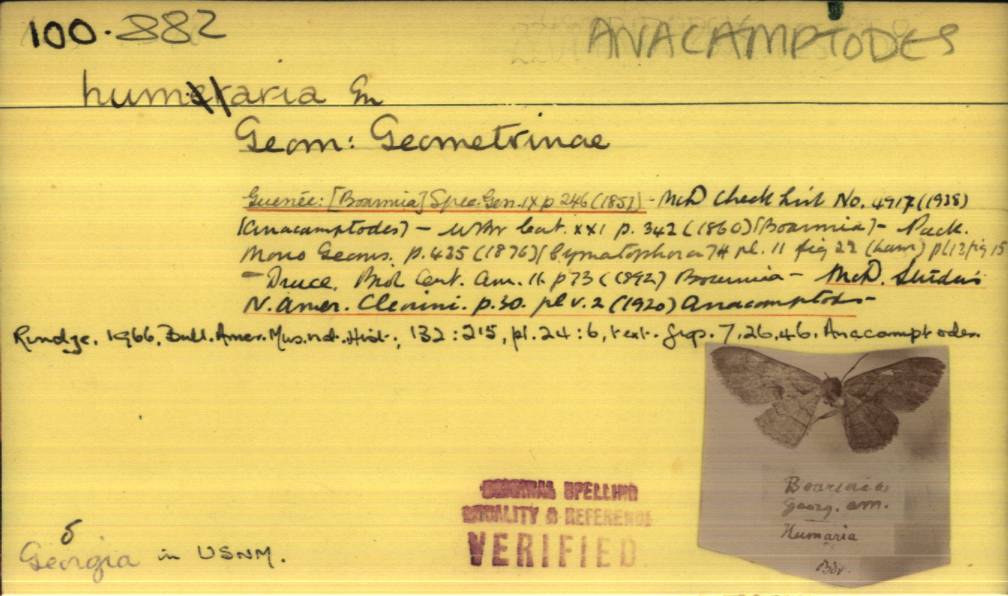 100.882
ANACAMPTODES
humaria Gn
Geom: Geometrinae
Guenée: [Boarmia] Spec. Gen. IX p 246 (1857) - McD Check List No. 4917 (1938)
[Anacamptodes] - Wlkr Cat. XXI p. 342 (1860) [Boarmia] - Pack.
Mono Geoms. p. 435 (1876) [Cymatophora] pl. 11 fig 22 (Larv) pl 13 fig 15
- Druce, Biol. Cent. Am. II p 73 (1892) Boarmia - McD. Studies
N. Amer. Cleorini. p. 30. pl V. 2 (1920) Anacamptodes
Rindge, 1966, Bull. Amer. Mus. nat. Hist., 132 : 215, pl. 24 : 6, text-figs. 7, 26, 46. Anacamptodes.
Boarmia
Georg. am.
Humaria
Bdv.
ORIGINAL SPELLING
LOCALITY & REFERENCE
VERIFIED
Georgia in USNM.